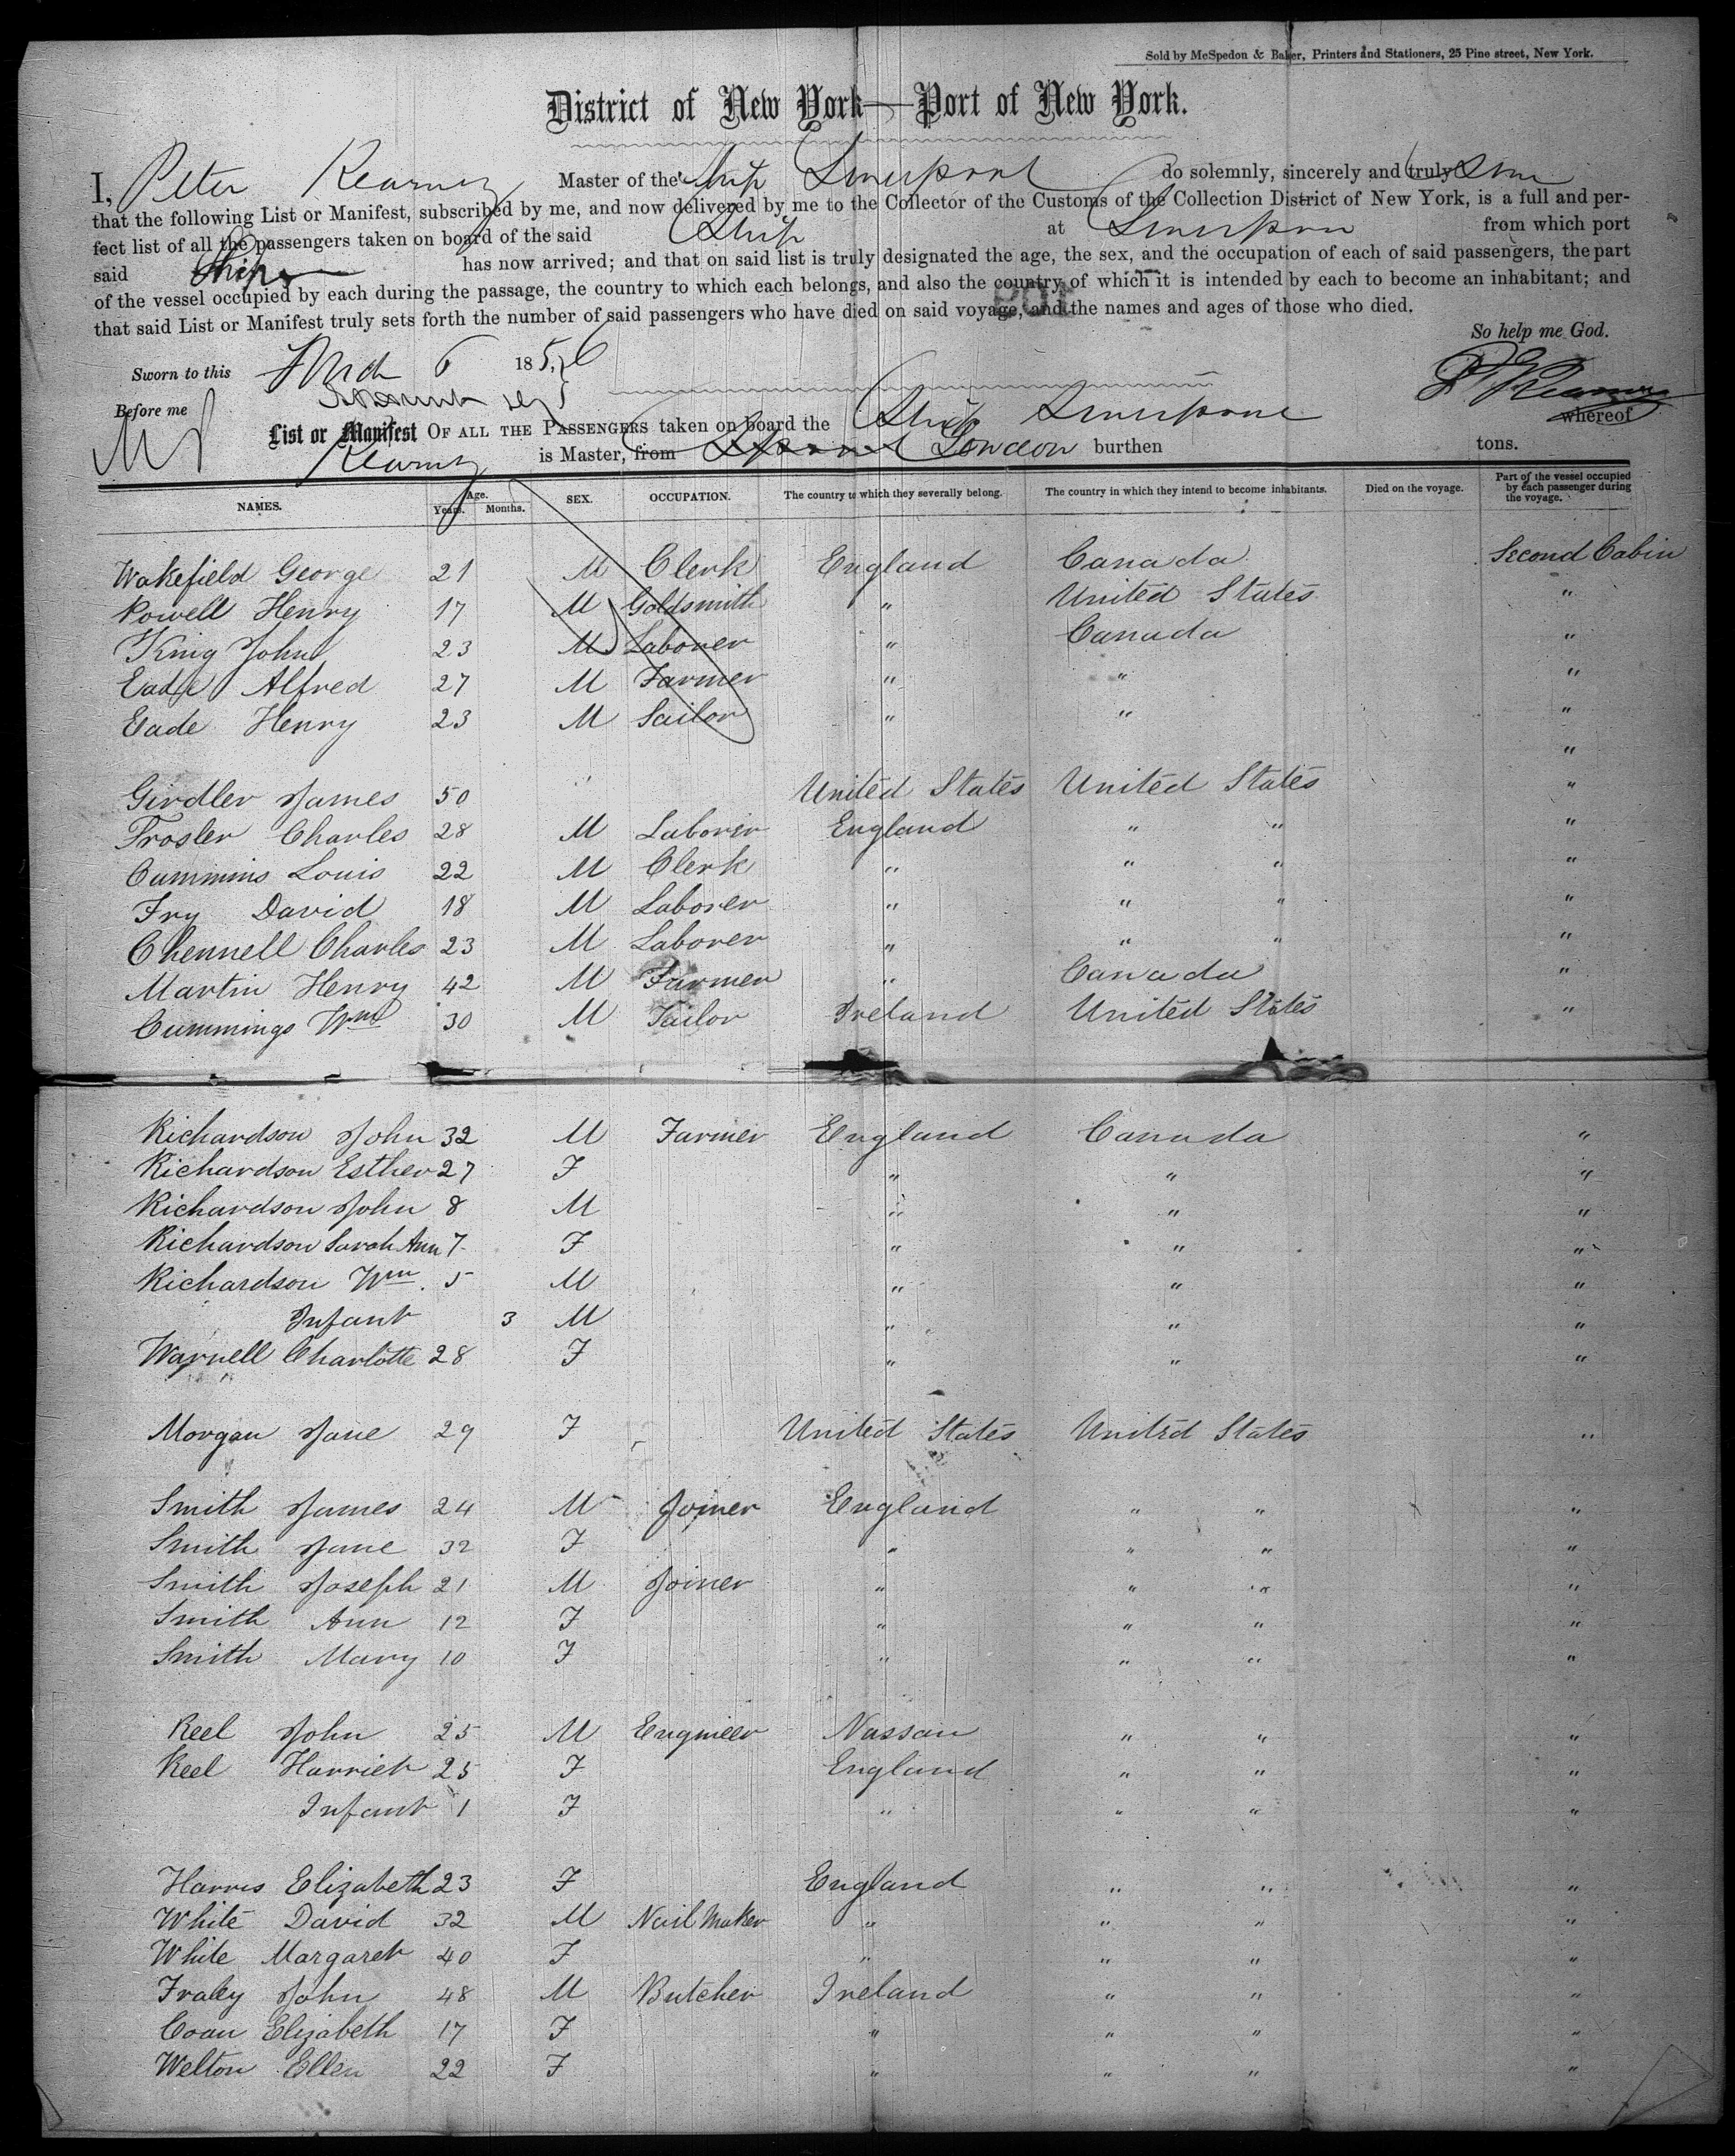 Sold by McSpedon & Baker, Printers and Stationers, 25 Pine street, New York.
District of New York—Port of New York.
I, Peter Kearney Master of the Ship Liverpool do solemnly, sincerely and truly
that the following List or Manifest, subscribed by me, and now delivered by me to the Collector of the Customs of the Collection District of New York, is a full and per-
fect list of all the passengers taken on board of the said Ship at from which port
said Ship has now arrived; and that on said list is truly designated the age, the sex, and the occupation of each of said passengers, the part
of the vessel occupied by each during the passage, the country to which each belongs, and also the country of which it is intended by each to become an inhabitant; and
that said List or Manifest truly sets forth the number of said passengers who have died on said voyage, and the names and ages of those who died.
So help me God.
Sworn to this 6 1856
P Kearney
Before me
List or Manifest OF ALL THE PASSENGERS taken on board the Ship Liverpool whereof
Kearney is Master, from London burthen tons.
NAMES. Age. Years. Months. SEX. OCCUPATION. The country to which they severally belong. The country in which they intend to become inhabitants. Died on the voyage. Part of the vessel occupied by each passenger during the voyage.
Wakefield George 21 M Clerk England Canada Second Cabin
Powell Henry 17 M Goldsmith " United States "
King John 23 M Laborer " Canada "
Eade Alfred 27 M Farmer " " "
Eade Henry 23 M Sailor " " "
"
Girdler James 50 United States United States "
Trosler Charles 28 M Laborer England " " "
Cummins Louis 22 M Clerk " " " "
Fry David 18 M Laborer " " " "
Chennell Charles 23 M Laborer " " " "
Martin Henry 42 M Farmer " Canada "
Cummings Wm 30 M Tailor Ireland United States "
Richardson John 32 M Farmer England Canada "
Richardson Esther 27 F " " "
Richardson John 8 M " " "
Richardson Sarah Ann 7 F " " "
Richardson Wm. 5 M " " "
Infant 3 M " " "
Warnell Charlotte 28 F " " "
Morgan Jane 29 F United States United States "
Smith James 24 M Joiner England " " "
Smith Jane 32 F " " " "
Smith Joseph 21 M Joiner " " " "
Smith Ann 12 F " " " "
Smith Mary 10 F " " " "
Keel John 25 M Engineer Nassau " " "
Keel Harriet 25 F England " " "
Infant 1 F " " " "
Harris Elizabeth 23 F England " " "
White David 32 M Nail Maker " " " "
White Margaret 40 F " " " "
Fraley John 48 M Butcher Ireland " " "
Coan Elizabeth 17 F " " " "
Welton Ellen 22 F " " " "